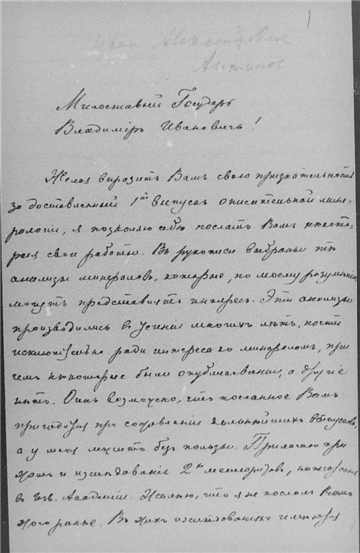 1
Иван Александрович
Антипов
Милостивый Государь
Владиміръ Ивановичъ!
Желая выразить Вамъ свою признательность
за доставленный 1й выпускъ описательной мине-
ралогіи, я позволю себѣ послать Вамъ нѣкото-
рыя свои работы. Въ рукописи выбраны тѣ
анализы минераловъ, которые, по моему разумѣнію
могутъ представлять интересъ. Эти анализы
производились въ теченіи многихъ лѣтъ, почти
исключительно ради интереса къ минераламъ, при
чемъ нѣкоторые были опубликованы, а другіе
нѣтъ. Очень возможно, что посланное Вамъ
пригодится при составленіи дальнѣйшихъ выпусковъ,
а у меня лежитъ безъ пользы. Прилагаю при
этомъ и изслѣдованіе 2хъ метеоритовъ, напечатанное
въ Изв. Академіи. Жалѣю, что я не послалъ Вамъ
этого ранѣе. Въ этихъ изслѣдованіяхъ